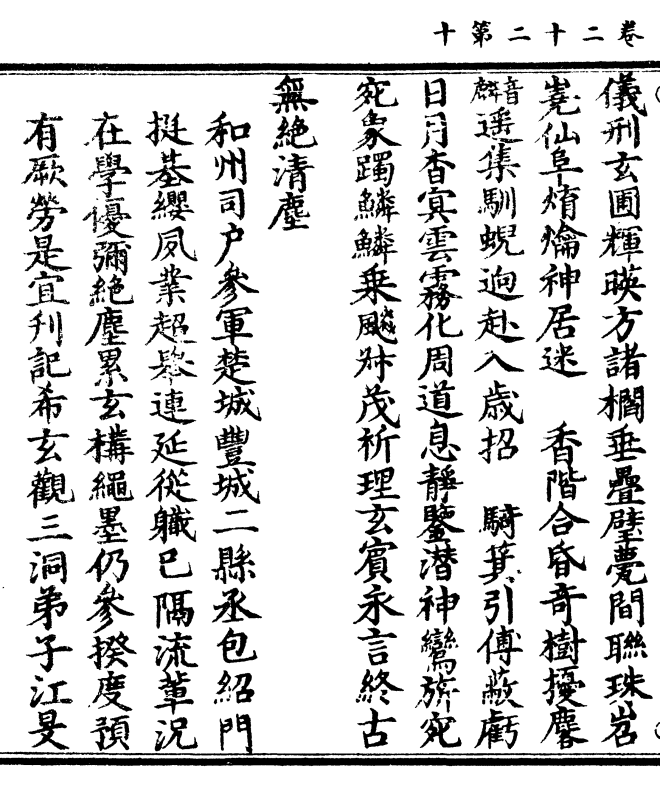 卷二十二第十
儀刑玄圃輝暎方諸櫚垂疊璧甍間聯珠岧
嶤仙阜焴爚神居迷　香階合昏奇樹擾麏
音麟遥集馴蜺逈赴入歳招　騎箕引傅蔽虧
日月杳㝠雲霧化周道息靜鑒潜神鸞旂宛
宛象躅鱗鱗乗颷蔵茂祈理玄賓永言終古
無絶清塵
和州司户參軍楚城豐城二縣丞包紹門
挺基纓夙業超舉連延從軄已隔流輩況
在學優彌絶塵累玄構繩墨仍參揆度預
有厥勞是宜刋記希玄觀三洞弟子江旻